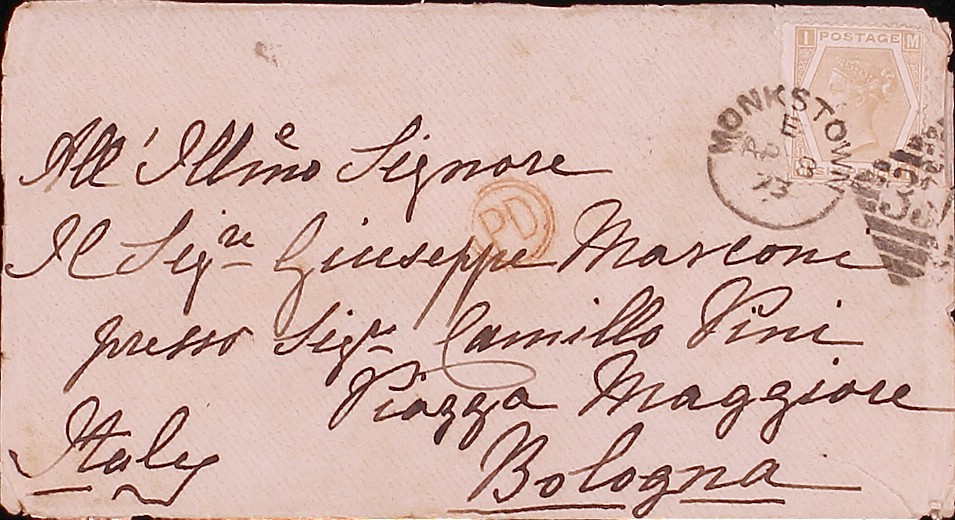 I POSTAGE M
MONKSTOWN
E
AP
73
PD
All' Illmo Signore
Il Sigre Giuseppe Marconi
presso Sigr Camillo Pini
Piazza Maggiore
Italy
Bologna